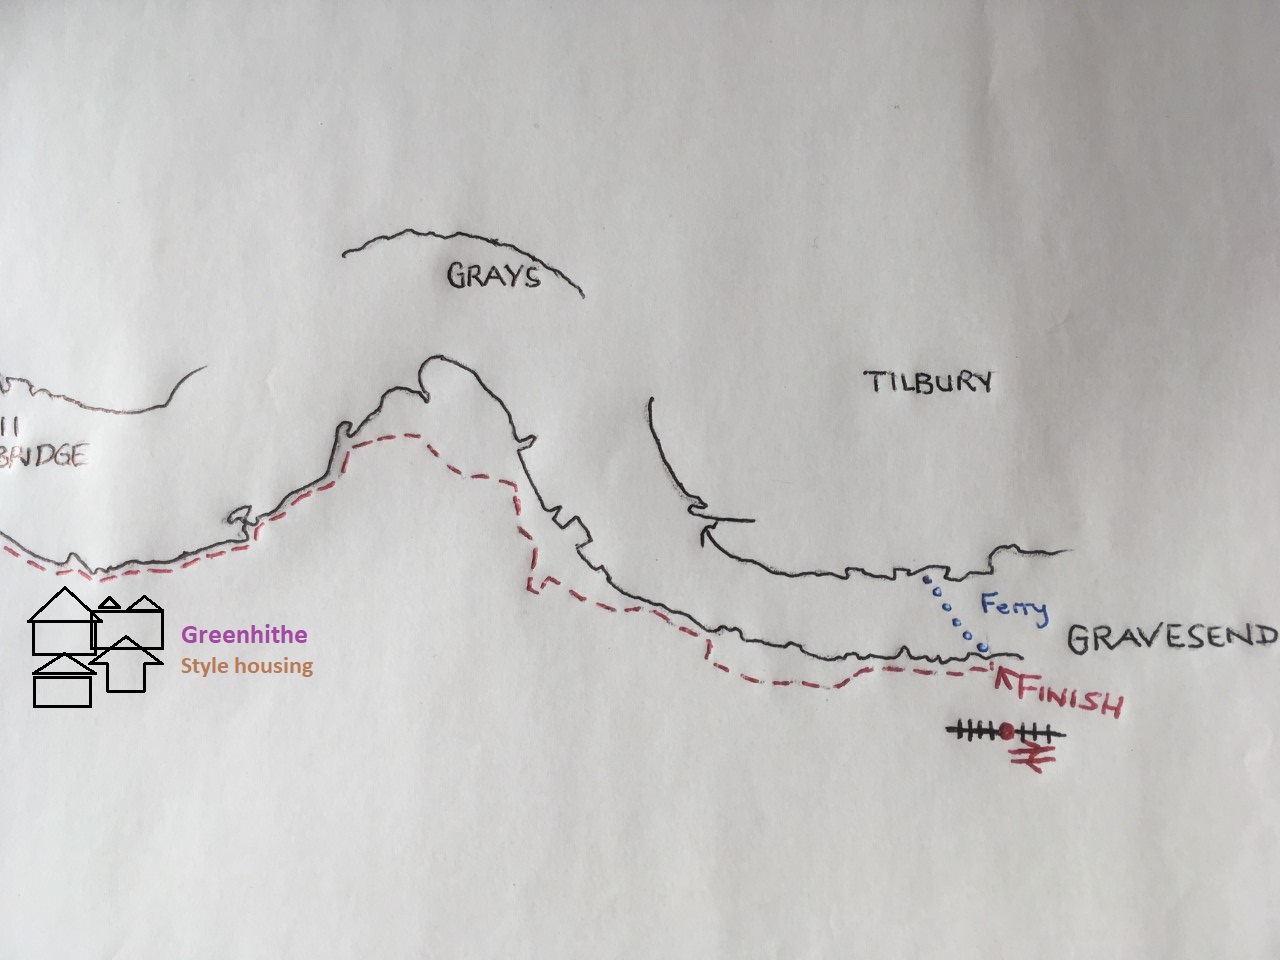 GRAYS
TILBURY
11
BRIDGE
Ferry
GRAVESEND
Greenhithe
Style housing
FINISH